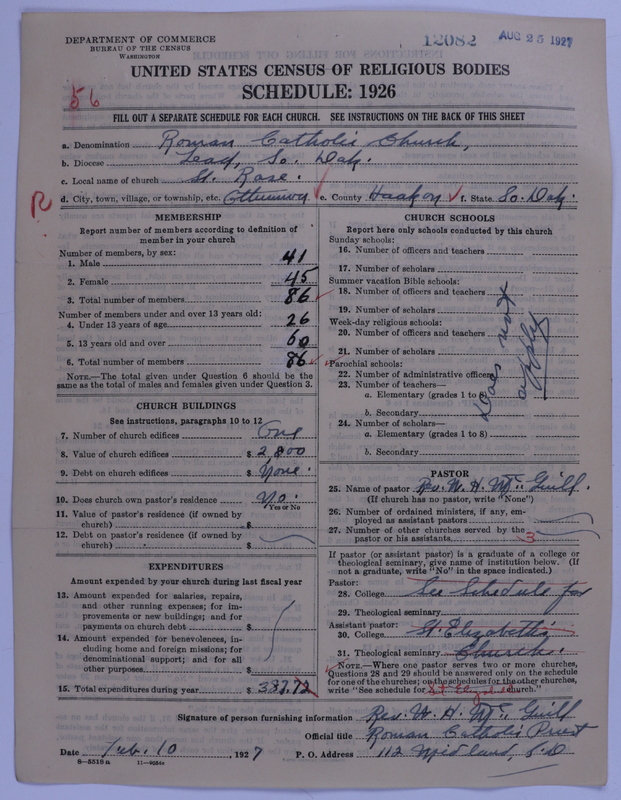 DEPARTMENT OF COMMERCE
BUREAU OF THE CENSUS
WASHINGTON
12082 AUG 25 1927
UNITED STATES CENSUS OF RELIGIOUS BODIES
SCHEDULE: 1926
56
FILL OUT A SEPARATE SCHEDULE FOR EACH CHURCH. SEE INSTRUCTIONS ON THE BACK OF THIS SHEET
a. Denomination Roman Catholic Church,
b. Diocese Lead, So. Dak.
c. Local name of church St. Rose.
R d. City, town, village, or township, etc. Ottumwa e. County Haakon f. State So. Dak.
MEMBERSHIP
Report number of members according to definition of member in your church
Number of members, by sex:
1. Male 41
2. Female 45
3. Total number of members 86
Number of members under and over 13 years old:
4. Under 13 years of age 26
5. 13 years old and over 60
6. Total number of members 86
NOTE.—The total given under Question 6 should be the
same as the total of males and females given under Question 3.
CHURCH BUILDINGS
See instructions, paragraphs 10 to 12
7. Number of church edifices One
8. Value of church edifices $ 2,800
9. Debt on church edifices $ None.
10. Does church own pastor's residence No.
Yes or No
11. Value of pastor's residence (if owned by
church) $
12. Debt on pastor's residence (if owned by
church) $
EXPENDITURES
Amount expended by your church during last fiscal year
13. Amount expended for salaries, repairs,
and other running expenses; for im-
provements or new buildings; and for
payments on church debt $
14. Amount expended for benevolences, in-
cluding home and foreign missions; for
denominational support; and for all
other purposes $
15. Total expenditures during year $ 387.72
CHURCH SCHOOLS
Report here only schools conducted by this church
Sunday schools:
16. Number of officers and teachers
17. Number of scholars
Summer vacation Bible schools:
18. Number of officers and teachers
19. Number of scholars
Week-day religious schools:
20. Number of officers and teachers
21. Number of scholars
Parochial schools:
22. Number of administrative officers
23. Number of teachers—
a. Elementary (grades 1 to 8)
b. Secondary
24. Number of scholars—
a. Elementary (grades 1 to 8)
b. Secondary
Does not
apply
PASTOR
25. Name of pastor Rev. W. H. Mc Guill.
(If church has no pastor, write "None")
26. Number of ordained ministers, if any, em-
ployed as assistant pastors
27. Number of other churches served by the
pastor or his assistants 3
If pastor (or assistant pastor) is a graduate of a college or
theological seminary, give name of institution below. (If
not a graduate, write "No" in the space indicated.)
Pastor:
28. College See Schedule for
29. Theological seminary
Assistant pastor:
30. College St. Elizabeth's
31. Theological seminary Church.
NOTE.—Where one pastor serves two or more churches,
Questions 28 and 29 should be answered only on the schedule
for one of the churches; on the schedules for the other churches,
write "See schedule for St Elizabeth church."
Signature of person furnishing information Rev. W. H. Mc Guill
Official title Roman Catholic Priest
Date Feb. 10, 1927 P. O. Address 112 Midland, S.D
8—5518a 11—9084a